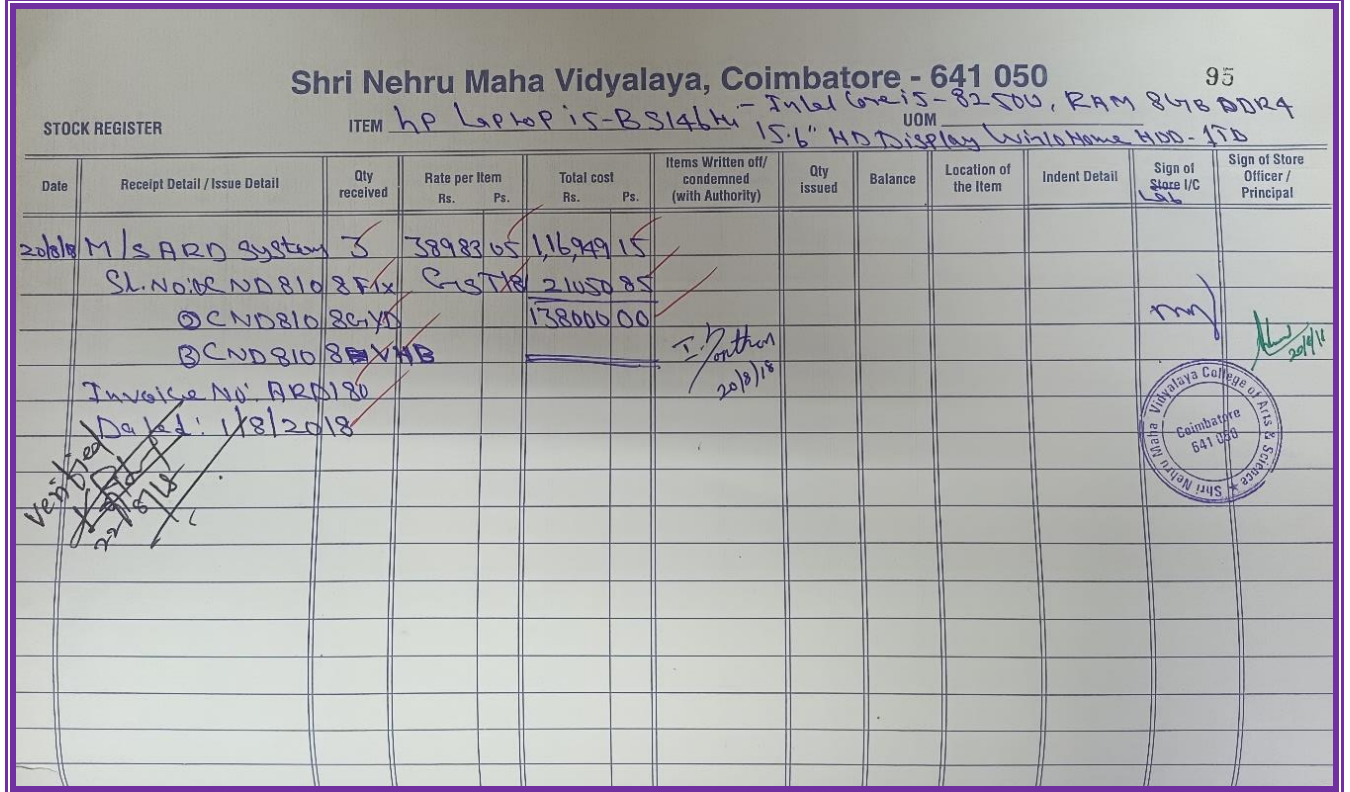 Shri Nehru Maha Vidyalaya, Coimbatore - 641 050
95
STOCK REGISTER
ITEM hp Laptop 15-BS146tu - Intel Core i5-8250U, RAM 8GB DDR4
UOM
15.6" HD Display Win10 Home HDD-1TB
Date Receipt Detail / Issue Detail Qty received Rate per Item Rs. Ps. Total cost Rs. Ps. Items Written off/ condemned (with Authority) Qty issued Balance Location of the Item Indent Detail Sign of Store I/C Lab Sign of Store Officer / Principal
20/8/18 M/s ARD System 3 38983 05 1,16,949 15
Sl. No: ① CND8108F1x GST 18 21050 85
② CND8108GYD 138000 00
③ CND8108VHB
20/8/18
Invoice No: ARD180
Dated: 1/8/2018
Verified
22/8/18
Shri Nehru Maha Vidyalaya College of Arts & Science ★
Coimbatore
641 050